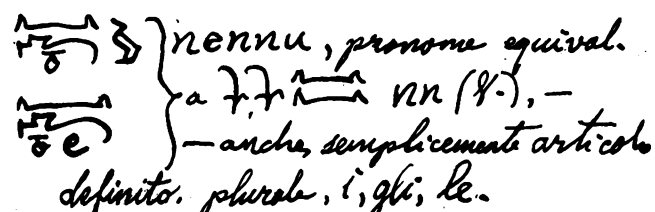 nennu, pronome equival.
a nn (V.), —
— anche, semplicemente articolo
definito. plurale, i, gli, le.